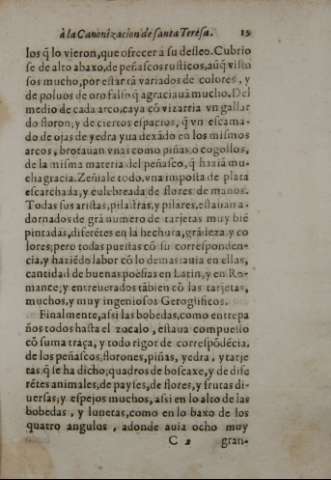 à la Canonizacion de santa Teresa. 15
los q̃ lo vieron, que ofrecer à su desseo. Cubrio
se de alto abaxo, de peñascos rusticos, aũq̃ vist
sos mucho, por estar tã variados de colores, y
de poluos de oro falso q̃ agraciauã mucho. Del
medio de cada arco, caya cõ vizarria vn gallar
do floron, y de ciertos espacios, q̃ vn escama-
do de ojas de yedra yua dexãdo en los mismos
arcos, brotauan vnas como piñas, o cogollos,
de la misma materia del peñasco, q̃ haziã mu-
cha gracia. Zeñiale todo, vna imposta de plata
escarchada, y culebreada de flores de manos.
Todas sus aristas, pilastras, y pilares, estauan a-
dornados de grã numero de tarjetas muy biẽ
pintadas, diferẽtes en la hechura, grãdeza y co
lores; pero todas puestas cõ su corresponden-
cia, y haziẽdo labor cõ lo demas: auia en ellas,
cantidad de buenas poesias en Latin, y en Ro-
mance; y entreuerados tãbien cõ las tarjetas,
muchos, y muy ingeniosos Geroglificos.
Finalmente, assi las bobedas, como entrepa
ños todos hasta el zocalo, estaua compuesto
cõ suma traça, y todo rigor de correspõdẽcia.
de los peñascos, florones, piñas, yedra, y tarje
tas q̃ se ha dicho; quadros de boscaxe, y de dife
rẽtes animales, de payses, de flores, y frutas di-
uersas; y espejos muchos, assi en lo alto de las
bobedas, y lunetas, como en lo baxo de los
quatro angulos, adonde auia ocho muy
C 2 gran-